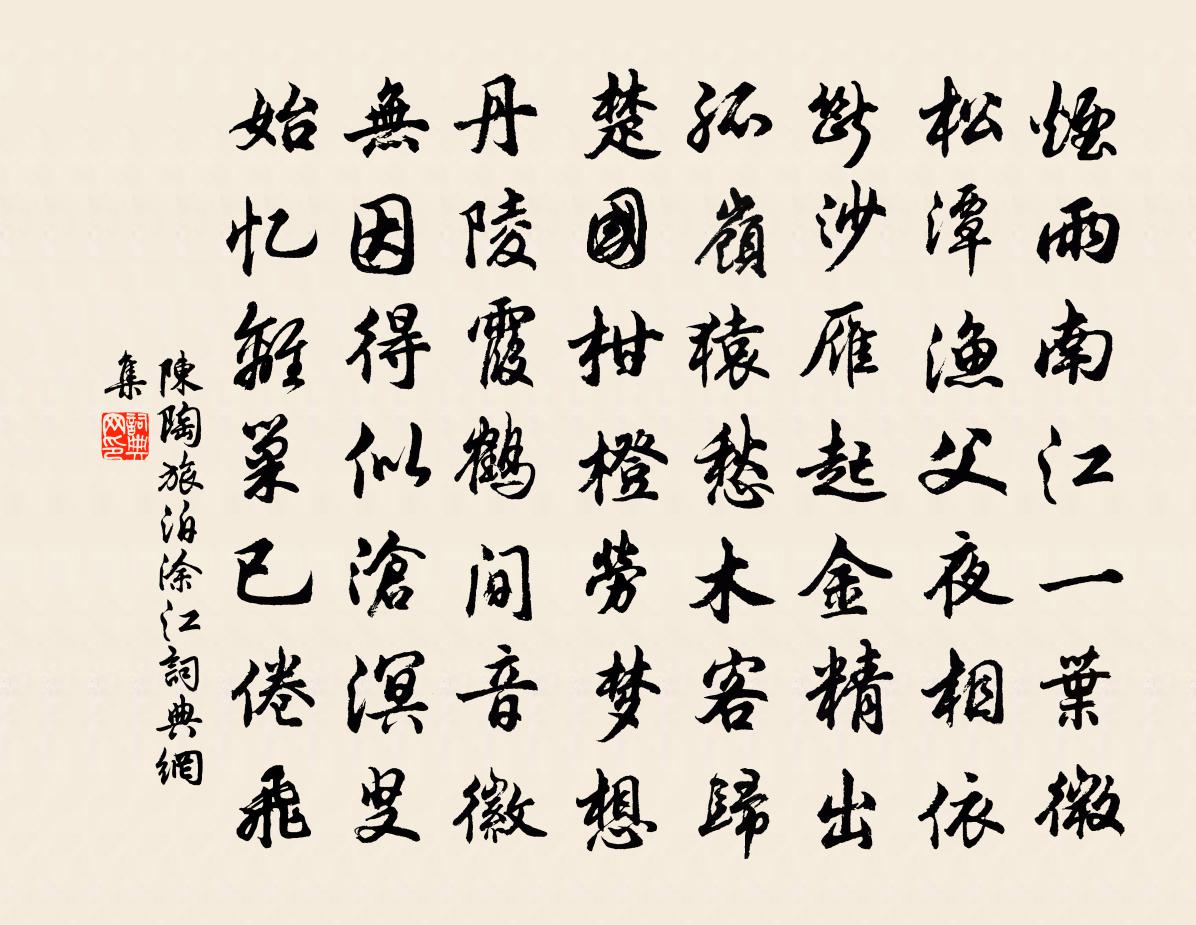 煙雨南江一葉微
松潭漁父夜相依
斷沙雁起金精出
孤嶺猿愁木客歸
楚國柑橙勞梦想
丹陵霞鶴間音徽
無因得似滄溟叟
始忆離巢已倦飛
陳陶旅泊涂江詞典網
集
詞典网印